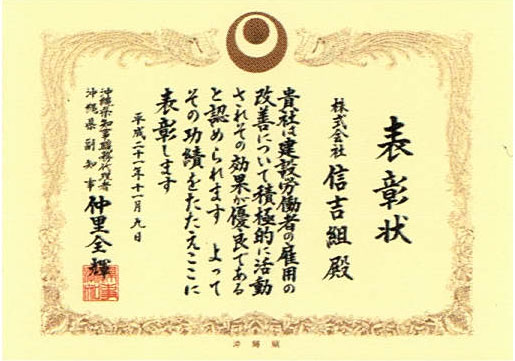 表彰状
株式会社 信吉組 殿
貴社は建設労働者の雇用の
改善について積極的に活動
されその効果が優良である
と認められます よって
その功績をたたえここに
表彰します
平成二十一年十一月九日
沖縄県知事職務代理者
沖縄県副知事 仲里全輝
沖縄縣